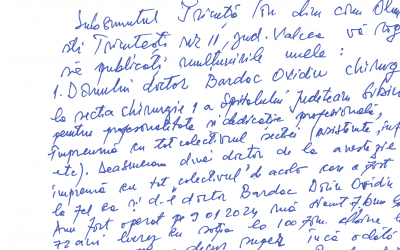 Subsemnatul Trincă Ion din com Olan
sti Trintești Nr 11, jud. Valcea vă rog
să publicați multumirile mele:
1. Domnului doctor Bardac Ovidiu chirurg
la sectia chirurgie 1 a Spitalului Judetean Sibiu
pentru profesionalitate si dedicație profesională,
împreună cu tot colectivul secției (asistente, inf
etc). Deasemenea d-nei doctor de la anestezie
împreună cu tot "colectivul" de acolo care a fost
la fel ca si d-l doctor Bardac Doriu Ovidiu
Am fost operat pe 9 01 2024 mă simt f. bine la
72 ani lucrez cu soția la 100 pom.
super încă odată